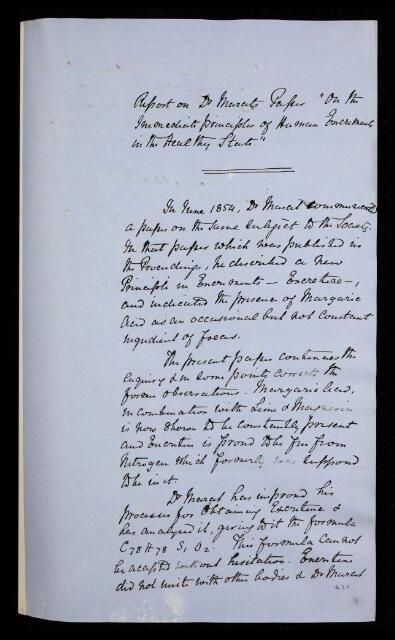 Report on Dr Marcet's Paper "On the
Immediate principles of Human Excrements
in the Healthy State"
In June 1854, Dr Marcet communicated
a paper on the same subject to the Society.
In that paper which was published in
the Proceedings, he described a new
Principle in Excrements – Excretine –,
and indicated the presence of Margaric
Acid as an occasional but not constant
ingredient of faeces.
The present paper continues the
Enquiry & in some points corrects the
former observations. Margaric Acid,
in combination with Lime & Magnesia
is now shown to be constantly present
and Excretine is found to be free from
Nitrogen which formerly was supposed
to be in it.
Dr Marcet has improved his
processes for obtaining Excretine &
has analysed it, giving to it the formula
C78 H78 S, O2. This formula cannot
be accepted without hesitation. Excretine
did not unite with other bodies & Dr Marcet